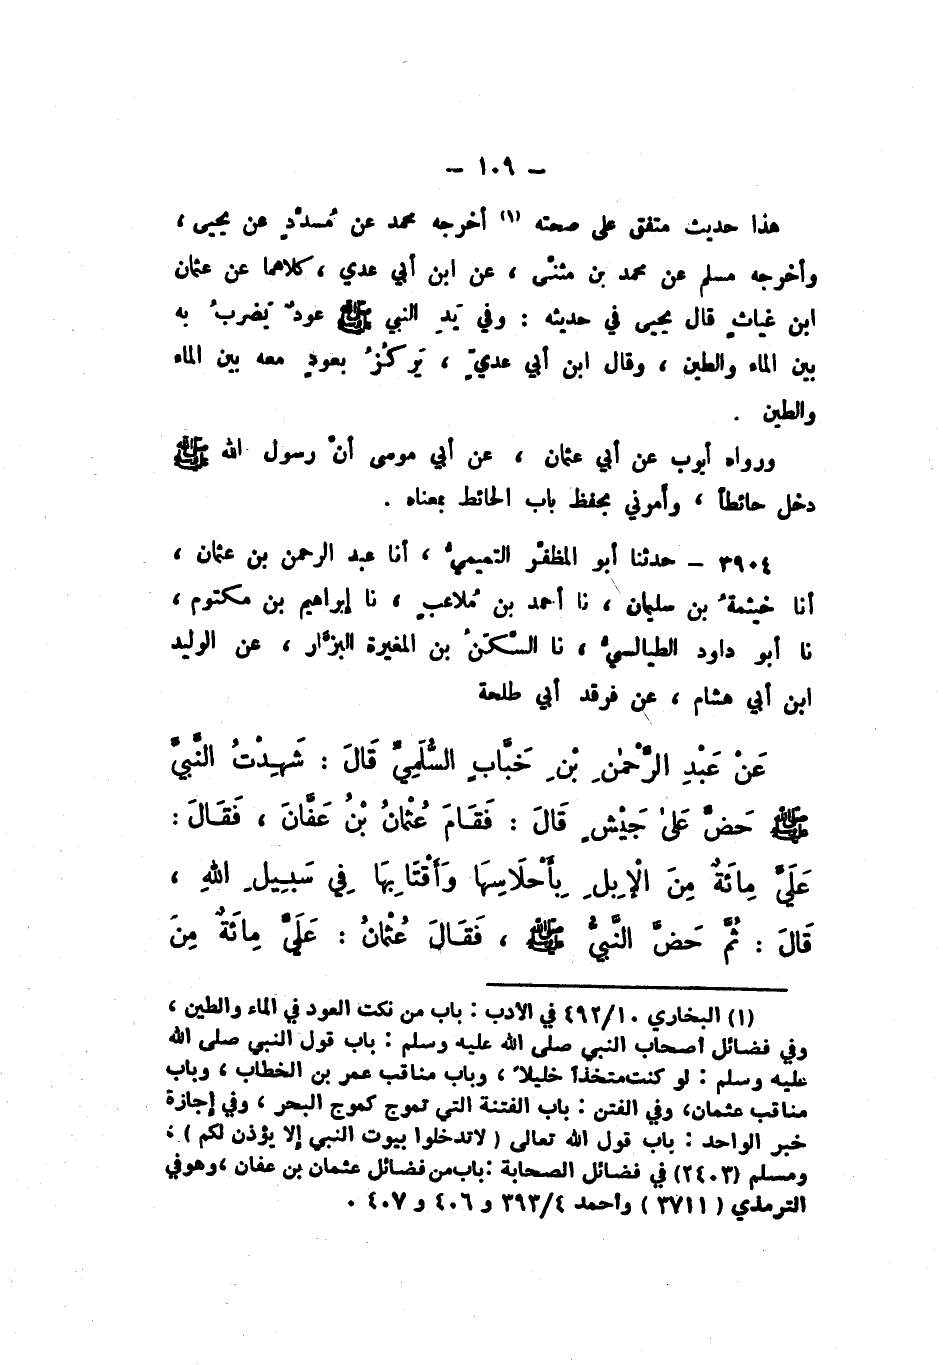 – ١٠٩ –
هذا حديث متفق على صحته (١) أخرجه محمد عن مُسدَّدٍ عن يحيى ،
وأخرجه مسلم عن محمد بن مثنّى ، عن ابن أبي عدي ، كلاهما عن عثمان
ابن غياثٍ قال يحيى في حديثه : وفي يَدِ النبي ﷺ عودٌ يَضربُ به
بين الماء والطين ، وقال ابن أبي عديٍّ ، يَركُزُ بعودٍ معه بين الماء
والطين .
ورواه أيوب عن أبي عثمان ، عن أبي موسى أنَّ رسول الله ﷺ
دخل حائطاً ، وأمرني بحفظ باب الحائط بمعناه .
٣٩٠٤ – حدثنا أبو المظفَّر التميميُّ ، أنا عبد الرحمن بن عثمان ،
أنا خيثمةُ بن سليمان ، نا أحمد بن مُلاعبٍ ، نا إبراهيم بن مكتوم ،
نا أبو داود الطيالسيُّ ، نا السَّكَنُ بن المغيرة البزَّار ، عن الوليد
ابن أبي هشام ، عن فرقد أبي طلحة
عَنْ عَبْدِ الرَّحْمٰنِ بْنِ خَبَّابٍ السُّلَمِيِّ قَالَ : شَهِدْتُ النَّبِيَّ
ﷺ حَضَّ عَلىٰ جَيْشٍ قَالَ : فَقَامَ عُثْمَانُ بْنُ عَفَّانَ ، فَقَالَ :
عَلَيَّ مِائَةٌ مِنَ الْإِبِلِ بِأَحْلَاسِهَا وَأَقْتَابِهَا فِي سَبِيلِ اللهِ ،
قَالَ : ثُمَّ حَضَّ النَّبِيُّ ﷺ ، فَقَالَ عُثْمَانُ : عَلَيَّ مِائَةٌ مِنَ
(١) البخاري ٤٩٢/١٠ في الأدب : باب من نكت العود في الماء والطين ،
وفي فضائل أصحاب النبي صلى الله عليه وسلم : باب قول النبي صلى الله
عليه وسلم : لو كنت متخذاً خليلاً ، وباب مناقب عمر بن الخطاب ، وباب
مناقب عثمان، وفي الفتن : باب الفتنة التي تموج كموج البحر ، وفي إجازة
خبر الواحد : باب قول الله تعالى ( لا تدخلوا بيوت النبي إلا يؤذن لكم ) ،
ومسلم (٢٤٠٣) في فضائل الصحابة : باب من فضائل عثمان بن عفان ، وهو في
الترمذي ( ٣٧١١ ) وأحمد ٣٩٣/٤ و ٤٠٦ و ٤٠٧ .